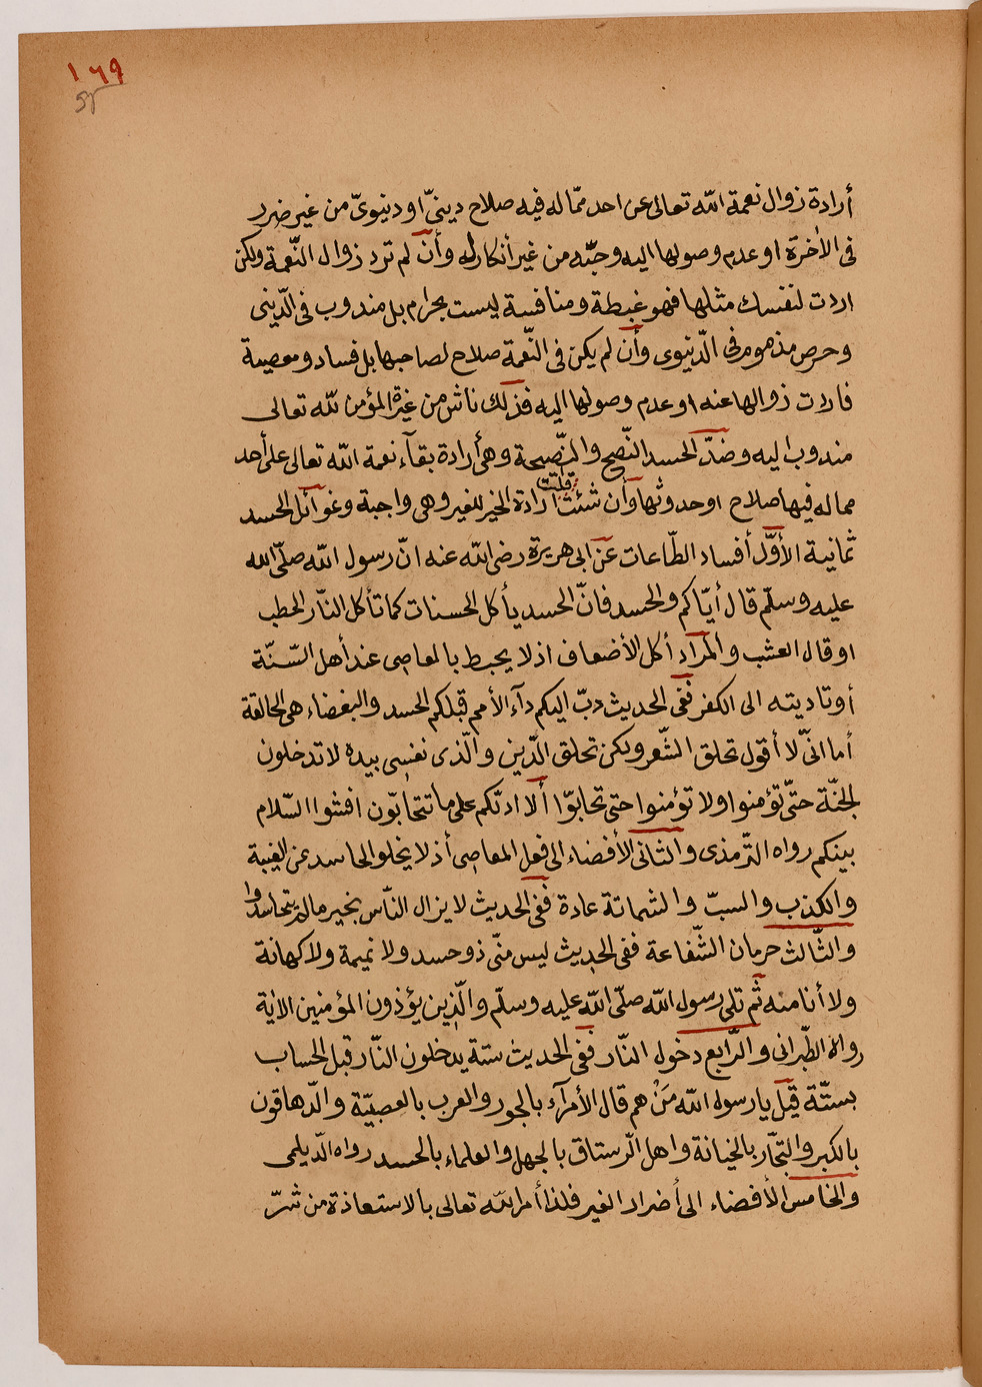 ١٦٩
٥٢
أرادة زوال نعمة اللّه تعالى عن احد ممّا له فيه صلاح دينىّ او دنيوىّ من غير ضرر
فى الأخرة او عدم وصولها اليه وحبّه من غير أنكار له وأن لم ترد زوال النّعمة ولكن
اردت لنفسك مثلها فهو غبطة ومنافسة ليست بحرام بل مندوب فى الدّينى
وحرص مذموم فى الدّنيوى وأن لم يكن فى النّعمة صلاح لصاحبها بل فساد ومعصية
فاردت زوالها عنه او عدم وصولها اليه فذلك ناش من غيرة المؤمن للّه تعالى
مندوب اليه وضدّ الحسد النّصح والنّصيحة وهى أرادة بقآء نعمة اللّه تعالى على أحد
مما له فيها صلاح او حدوثها وأن شئت قلت ارادة الخير للغير وهى واجبة وغوآئل الحسد
ثمانية الأوّل أفساد الطّاعات عن ابى هريرة رضى اللّه عنه انّ رسول اللّه صلّى اللّه
عليه وسلّم قال أيّاكم والحسد فانّ الحسد يأكل الحسنات كما تأكل النّار الحطب
او قال العشب والمرآد أكل الأضعاف اذ لا يحبط بالمعاصى عند أهل السّنّة
أو تاديته الى الكفر ففى الحديث دبّ اليكم دآء الأمم قبلكم الحسد والبغضاء هى الحالقة
أما انىّ لا أقول تحلق الشّعر ولكن تحلق الدّين والّذى نفسى بيده لا تدخلون
الجنّة حتّى تؤمنوا ولا تؤمنوا حتى تحابوّا ألا ادلّكم على ما تتحابّون افشوا السّلام
بينكم رواه التّرمذى والثانى الأفضاء الى فعل المعاصى أذ لا يخلو الحاسد عن الغيبة
والكذب والسبّ والشماتة عادة ففى الحديث لا يزال النّاس بخير مالم يتحاسدوا
والثّالث حرمان الشّفاعة ففى الحديث ليس منّى ذو حسد ولا نميمة ولا كهانة
ولا أنا منه ثم تلى رسول اللّه صلّى اللّه عليه وسلّم والّذين يؤذون المؤمنين الأية
رواه الطّبرانى والرّابع دخول النّار ففى الحديث ستة يدخلون النّار قبل الحساب
بستّة قيل يا رسول اللّه مَنْ هم قال الأمرآء بالجور والعرب بالعصبيّة والدّهاقون
بالكبر والتجّار بالخيانة واهل الرّستاق بالجهل والعلماء بالحسد رواه الدّيلمى
والخامس الأفضاء الى أضرار الغير فلذا أمر اللّه تعالى بالاستعاذة من شرّ